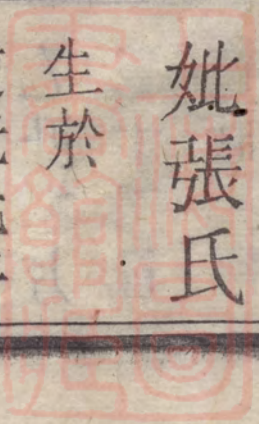 妣張氏
生於